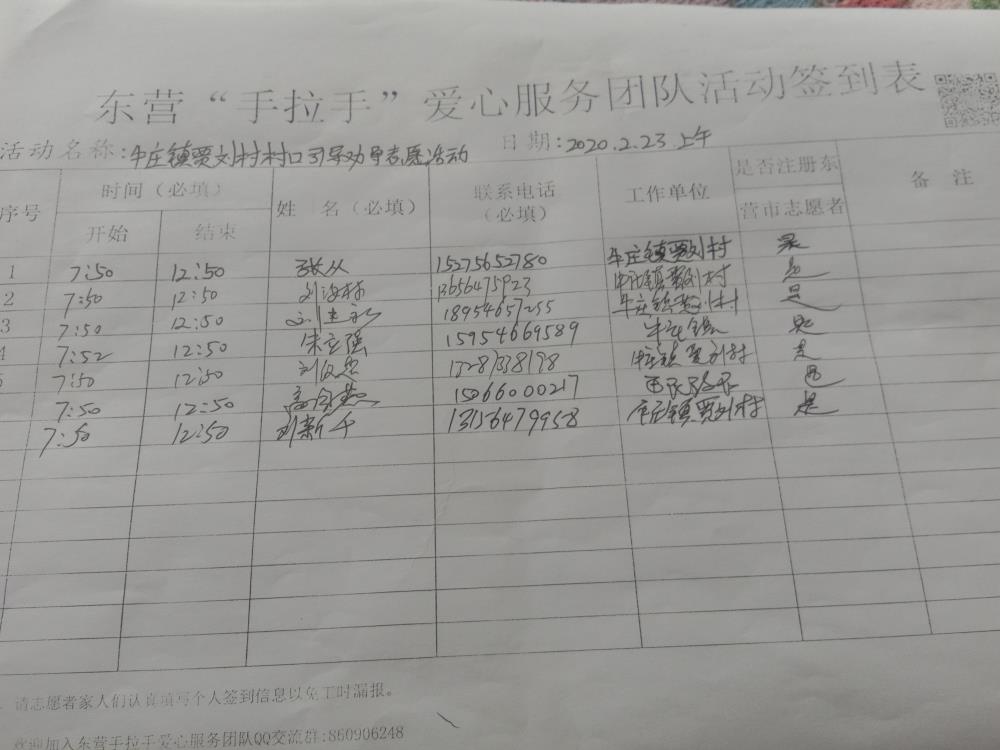 东营“手拉手”爱心服务团队活动签到表
活动名称:牛庄镇贾刘村村口引导劝导志愿活动 日期:2020.2.23上午
序号 时间（必填） 姓 名（必填） 联系电话（必填） 工作单位 是否注册东营市志愿者 备 注
开始 结束
1 7:50 12:50 张从 15275652780 牛庄镇贾刘村 是
2 7:50 12:50 13656475923 牛庄镇贾刘村 是
3 7:50 12:50 18954657255 牛庄镇贾刘村 是
4 7:52 12:50 宋立强 15954669589 牛庄镇 是
5 7:50 12:50 牛庄镇贾刘村 是
7:50 12:50 15066000217 是
7:50 12:50 刘新千 13156479958 牛庄镇贾刘村 是
请志愿者家人们认真填写个人签到信息以免工时漏报。
欢迎加入东营手拉手爱心服务团队QQ交流群:860906248